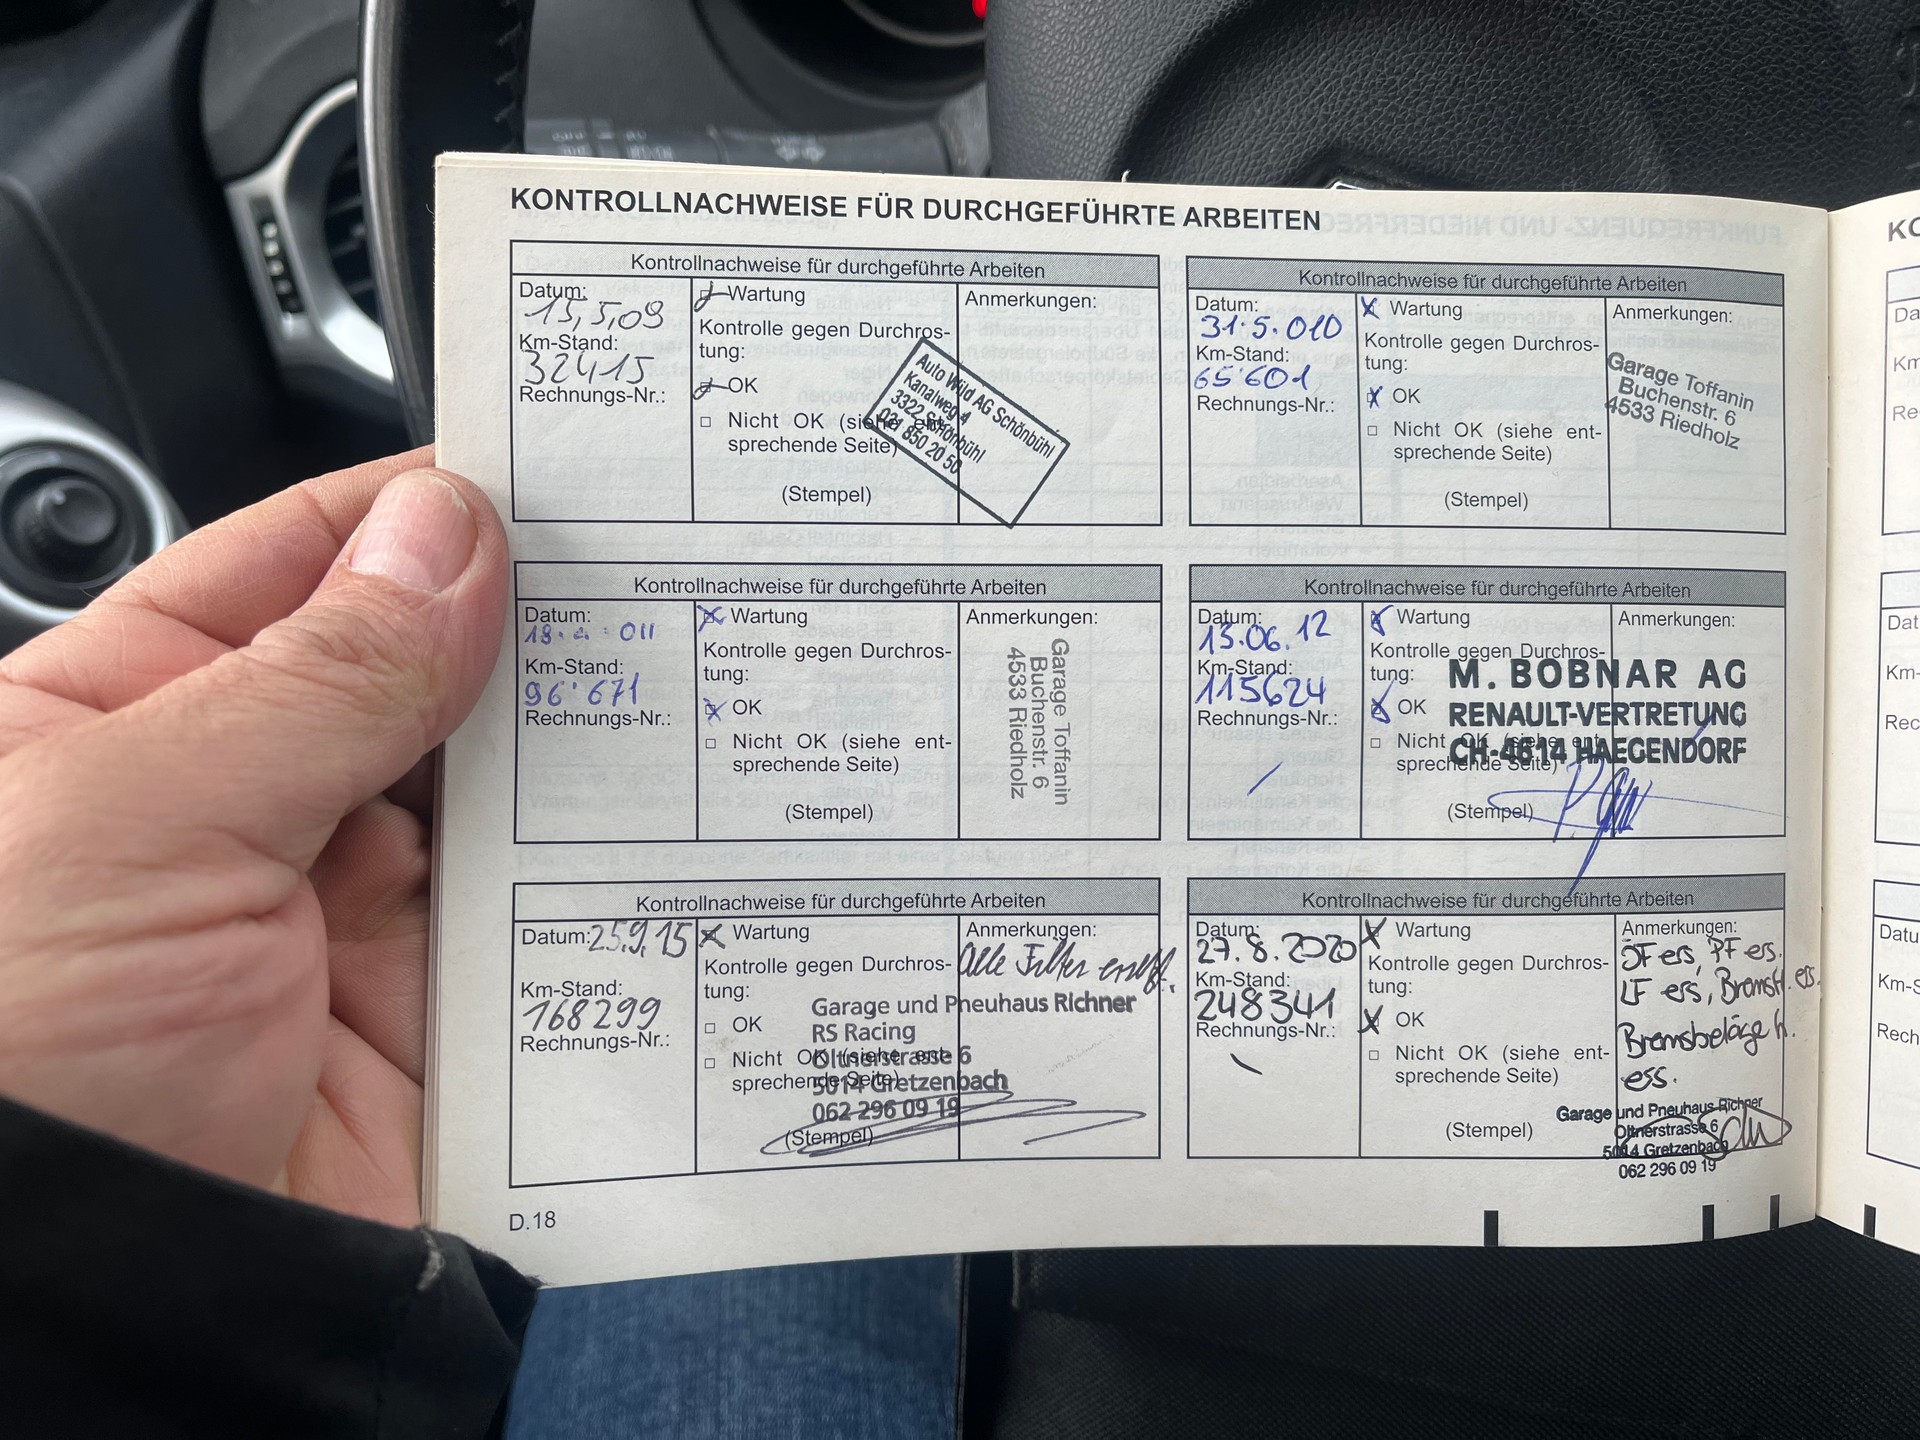 KONTROLLNACHWEISE FÜR DURCHGEFÜHRTE ARBEITEN
Kontrollnachweise für durchgeführte Arbeiten
Datum:
15,5,09
Km-Stand:
32415
Rechnungs-Nr.:
Wartung
Kontrolle gegen Durchros-
tung:
OK
Nicht OK (siehe ent-
sprechende Seite)
(Stempel)
Anmerkungen:
Auto Wild AG Schönbühl
Kanalweg 4
3322 Schönbühl
031 850 20 50
Kontrollnachweise für durchgeführte Arbeiten
Datum:
31.5.010
Km-Stand:
65'601
Rechnungs-Nr.:
Wartung
Kontrolle gegen Durchros-
tung:
OK
Nicht OK (siehe ent-
sprechende Seite)
(Stempel)
Anmerkungen:
Garage Toffanin
Buchenstr. 6
4533 Riedholz
Kontrollnachweise für durchgeführte Arbeiten
Datum:
011
Km-Stand:
96'671
Rechnungs-Nr.:
Wartung
Kontrolle gegen Durchros-
tung:
OK
Nicht OK (siehe ent-
sprechende Seite)
(Stempel)
Anmerkungen:
Garage Toffanin
Buchenstr. 6
4533 Riedholz
Kontrollnachweise für durchgeführte Arbeiten
Datum:
13.06.12
Km-Stand:
115624
Rechnungs-Nr.:
Wartung
Kontrolle gegen Durchros-
tung:
OK
Nicht OK (siehe ent-
sprechende Seite)
(Stempel)
Anmerkungen:
M. BOBNAR AG
RENAULT-VERTRETUNG
CH-4614 HAEGENDORF
Kontrollnachweise für durchgeführte Arbeiten
Datum: 25.9.15
Km-Stand:
168299
Rechnungs-Nr.:
Wartung
Kontrolle gegen Durchros-
tung:
OK
Nicht OK (siehe ent-
sprechende Seite)
(Stempel)
Anmerkungen:
Alle Filter
Garage und Pneuhaus Richner
RS Racing
Oltnerstrasse 6
5014 Gretzenbach
062 296 09 19
Kontrollnachweise für durchgeführte Arbeiten
Datum:
27.8.2020
Km-Stand:
248341
Rechnungs-Nr.:
Wartung
Kontrolle gegen Durchros-
tung:
OK
Nicht OK (siehe ent-
sprechende Seite)
(Stempel)
Anmerkungen:
ÖF ers, PF ers.
LF ers, Bremsfl. ers.
Bremsbeläge H.
ess.
Garage und Pneuhaus Richner
Oltnerstrasse 6
5014 Gretzenbach
062 296 09 19
D.18